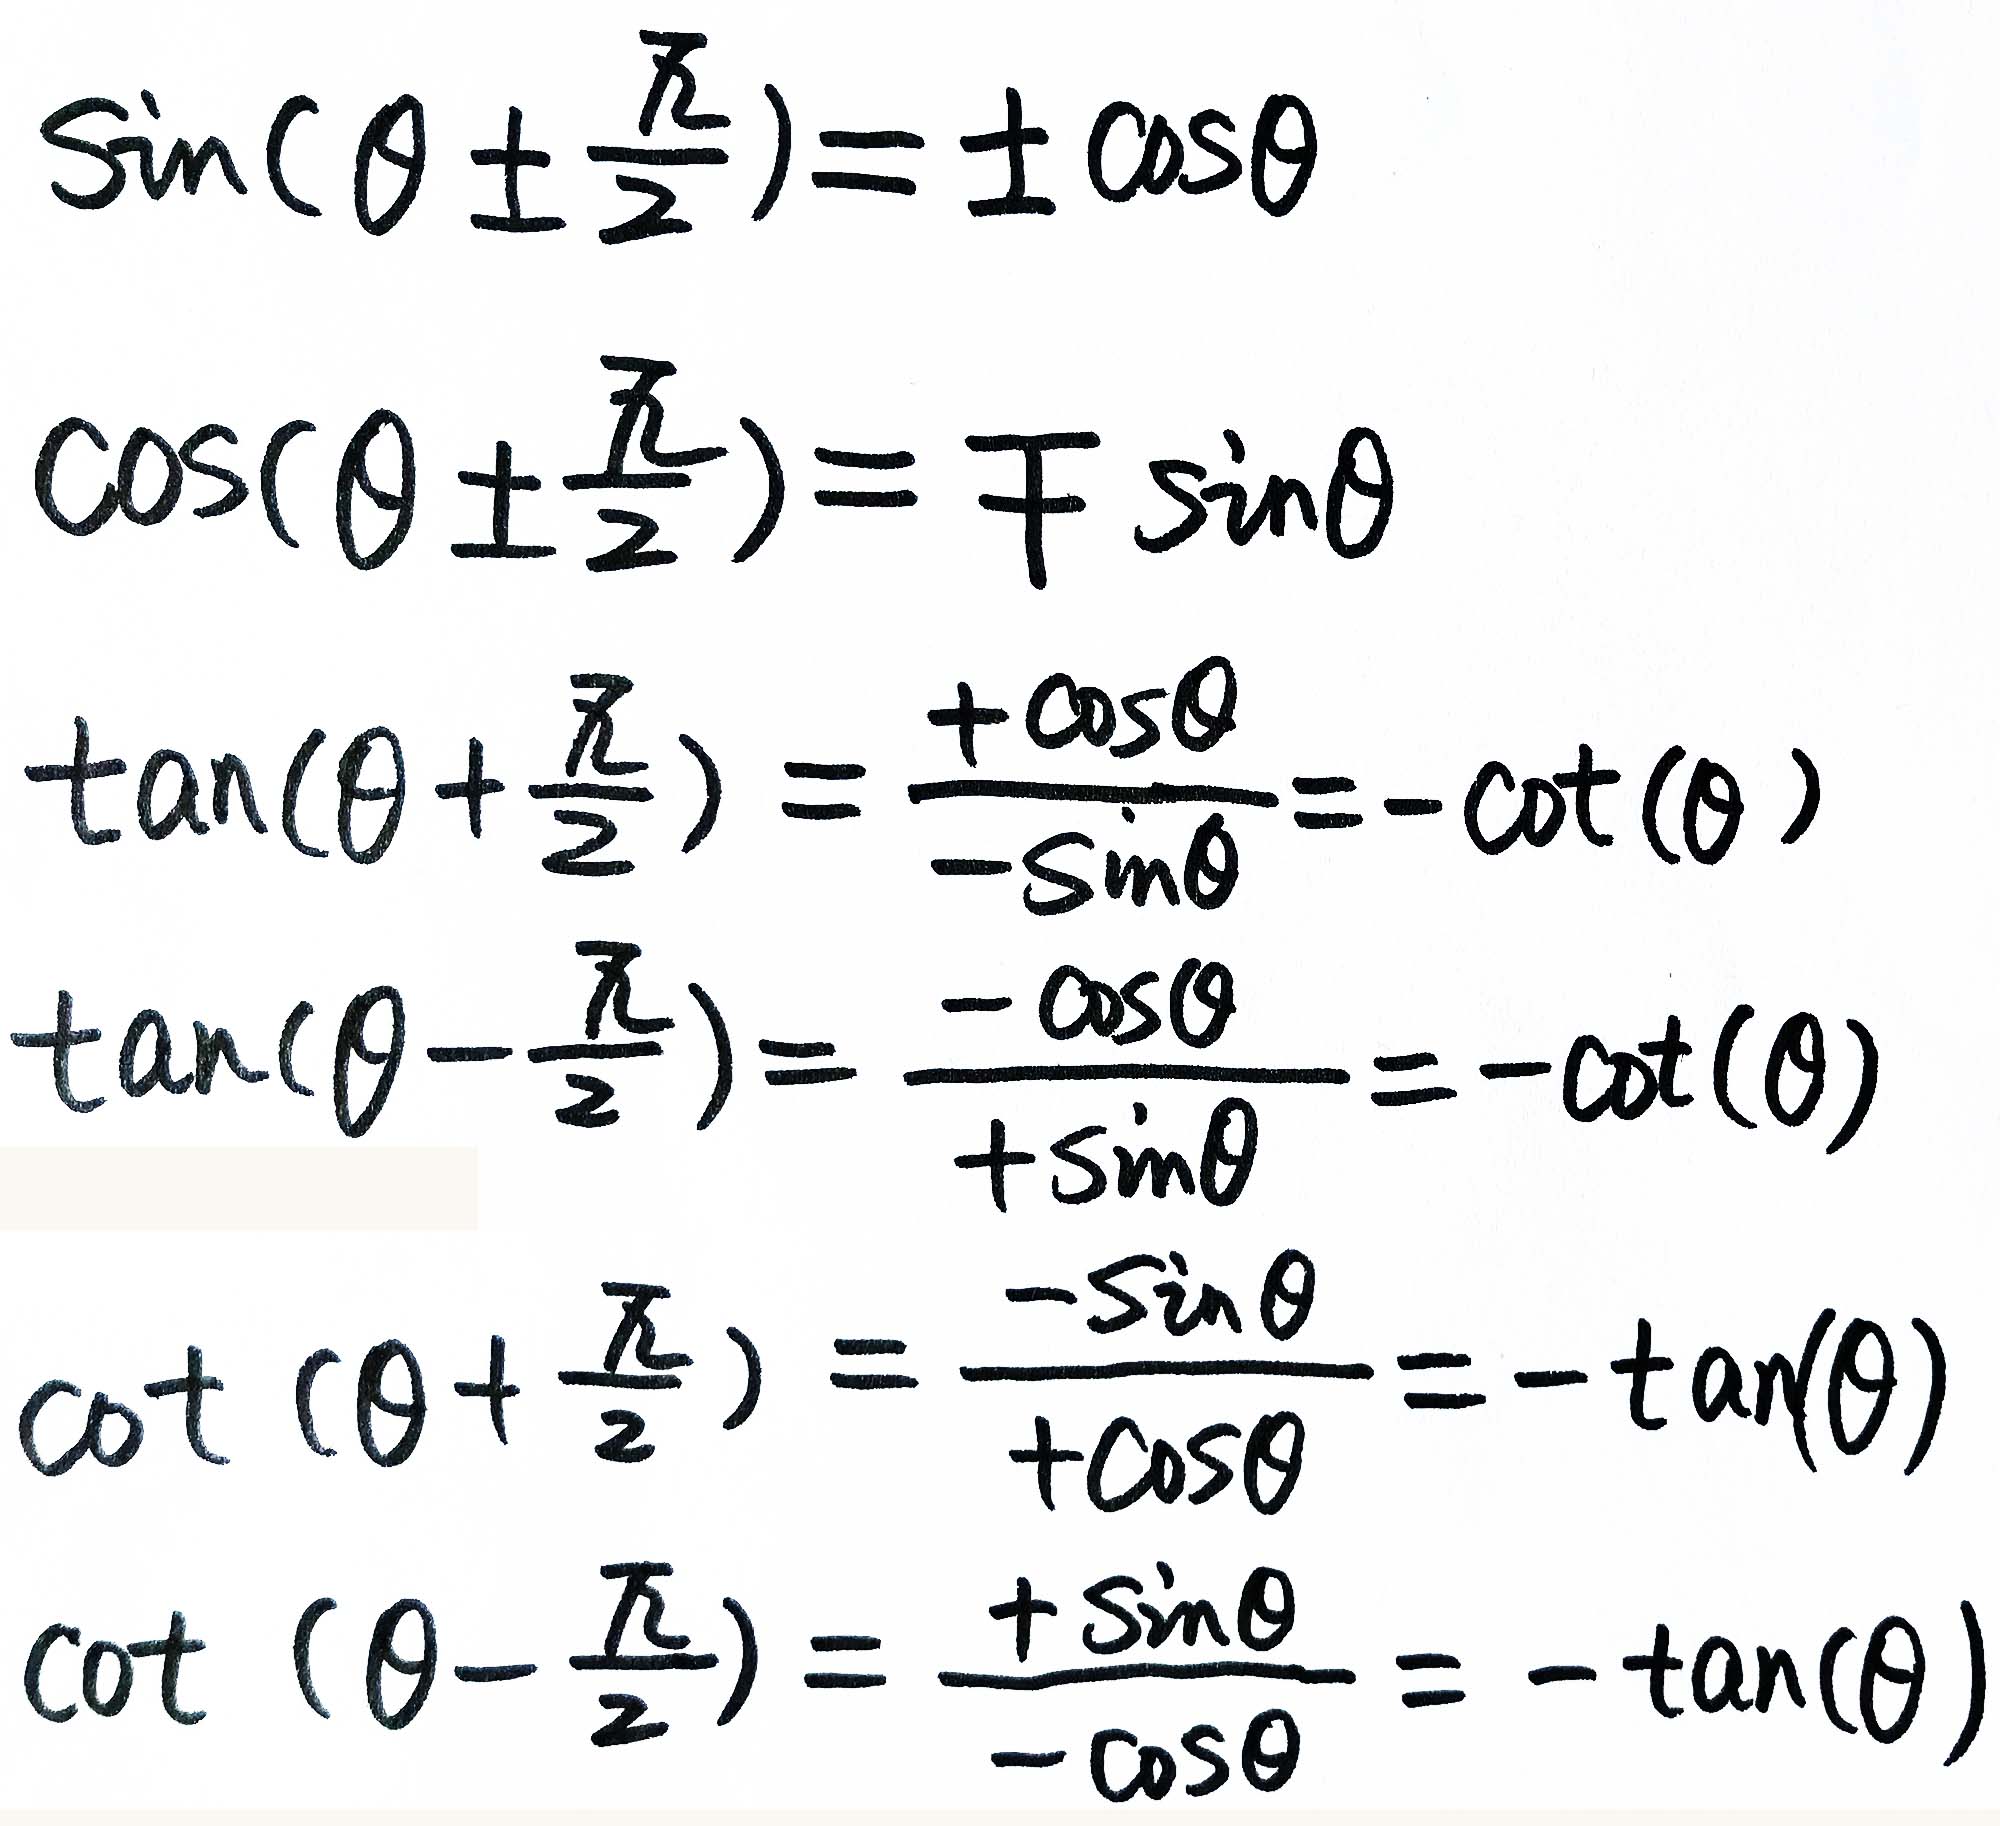 sin(θ ± π/2) = ± cosθ
cos(θ ± π/2) = ∓ sinθ
tan(θ + π/2) = +cosθ/-sinθ = -cot(θ)
tan(θ - π/2) = -cosθ/+sinθ = -cot(θ)
cot(θ + π/2) = -sinθ/+cosθ = -tan(θ)
cot(θ - π/2) = +sinθ/-cosθ = -tan(θ)